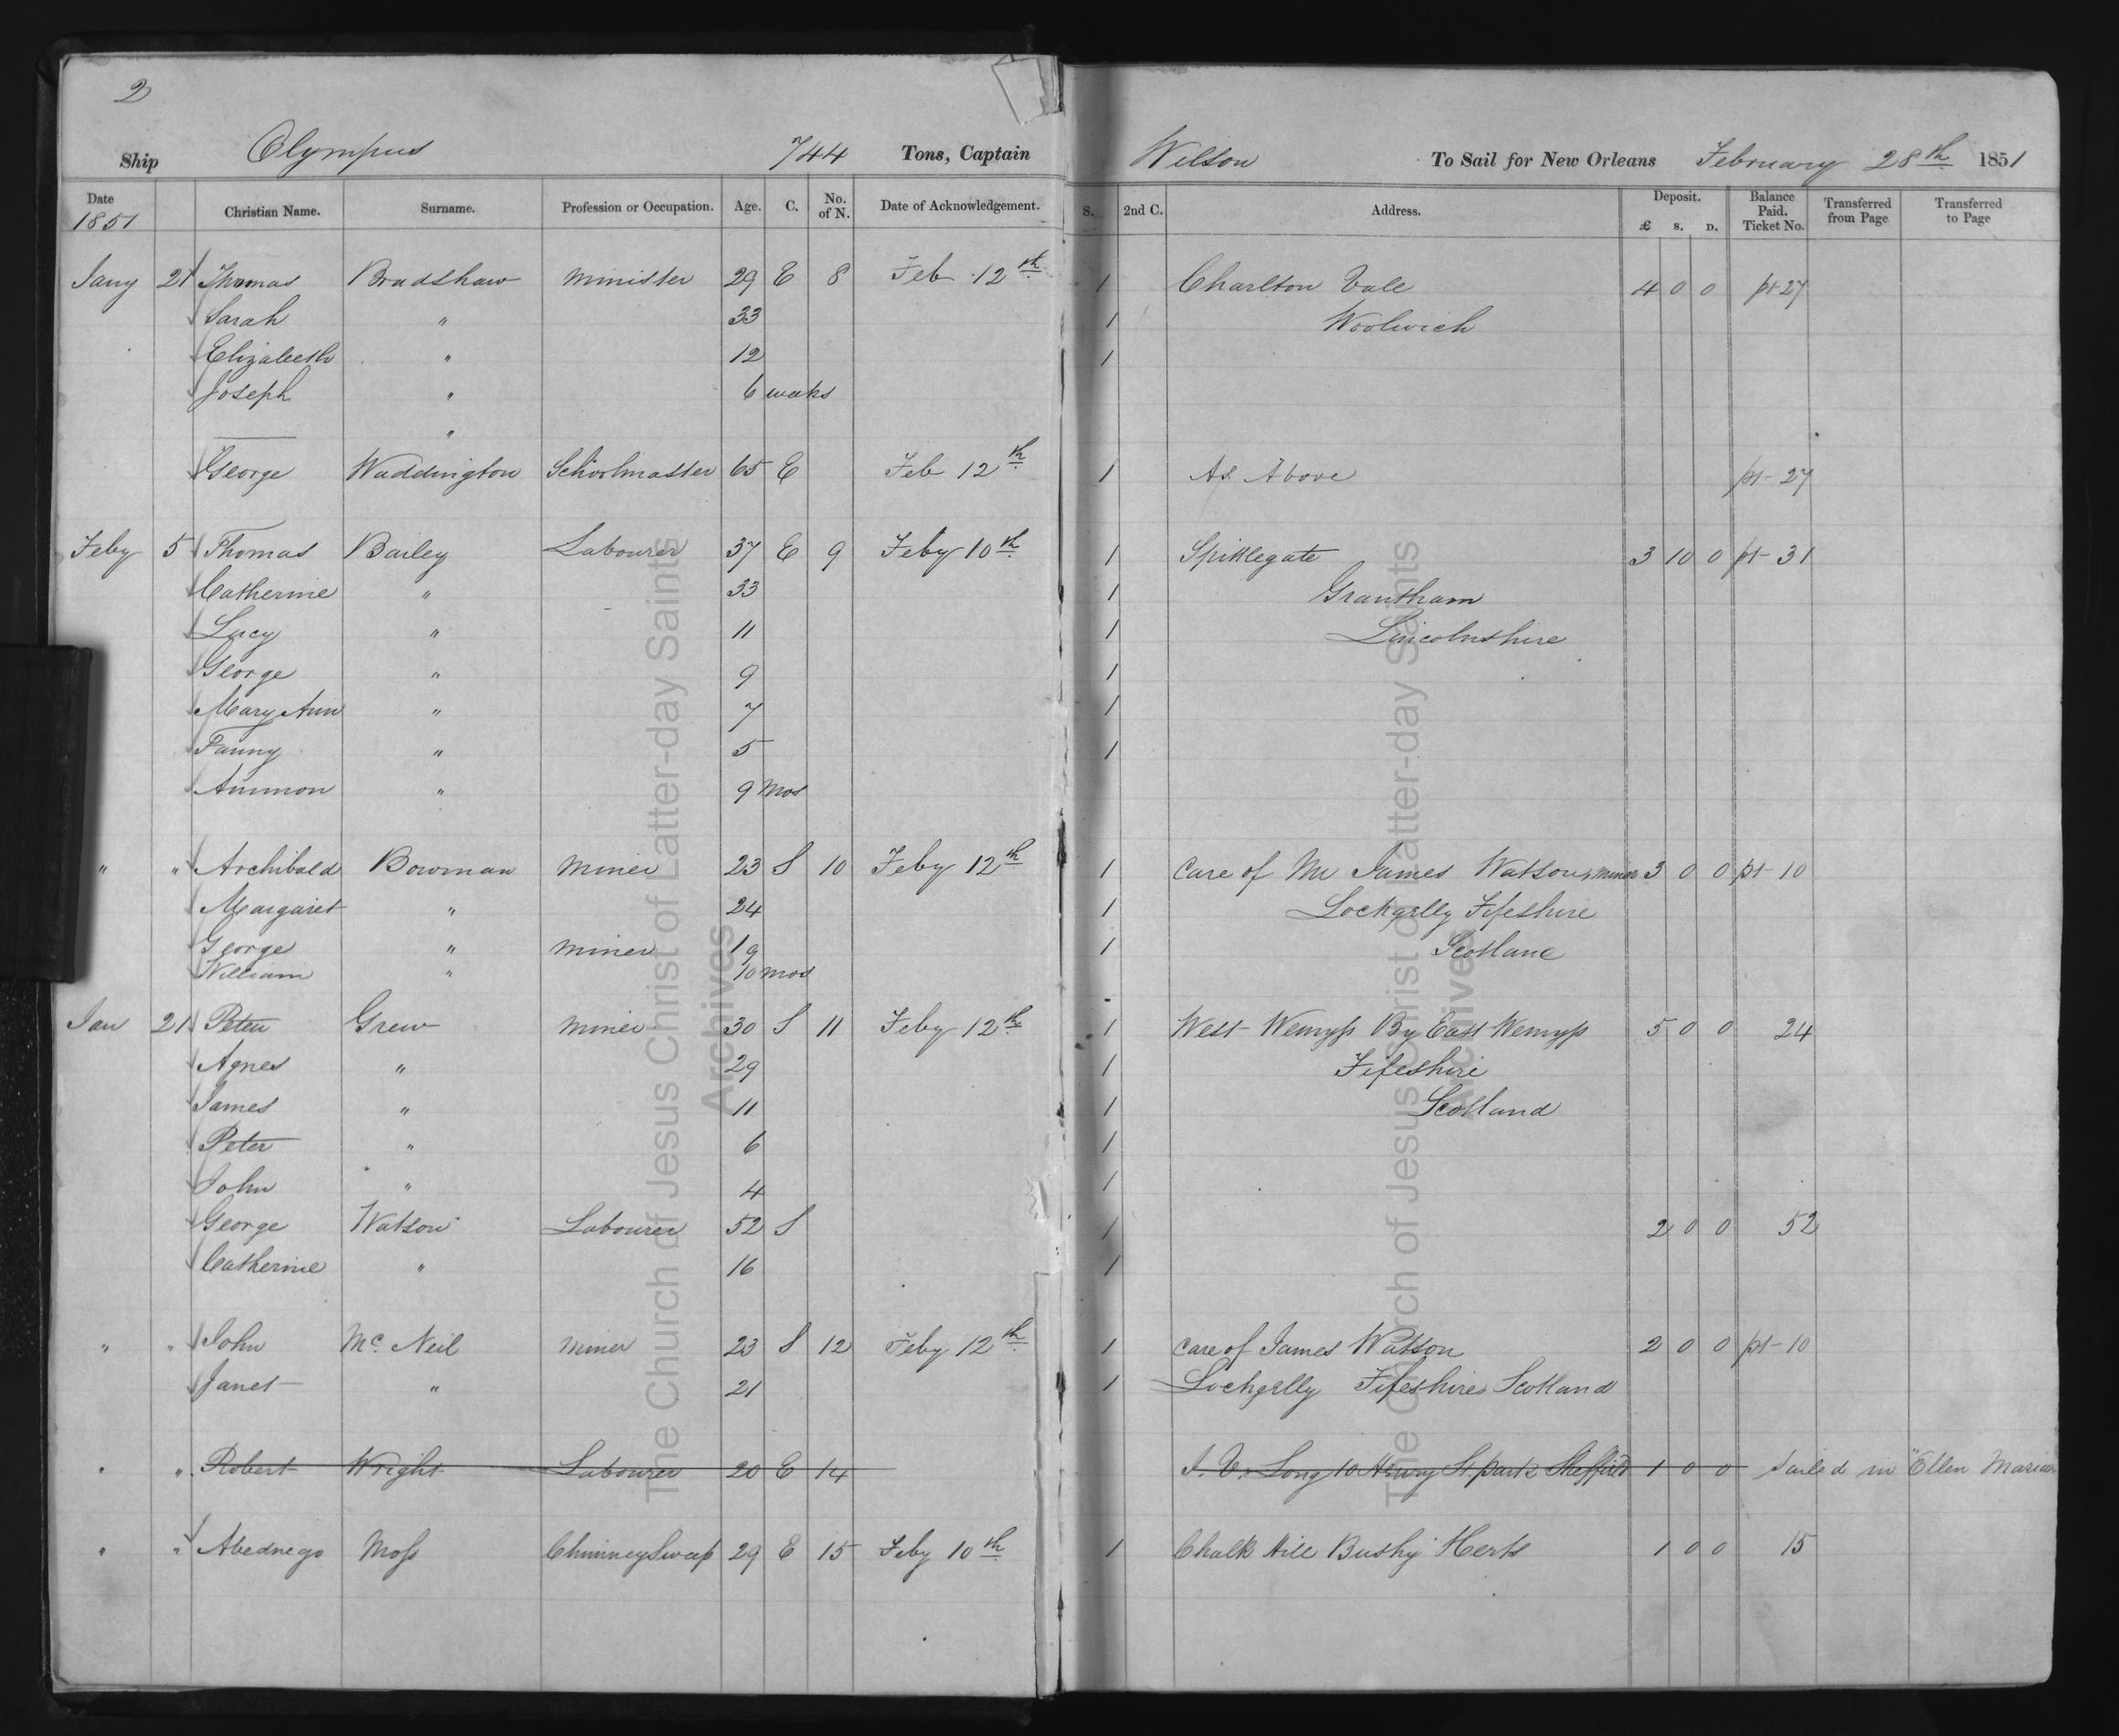 2
Ship Olympus 744 Tons, Captain Wilson To Sail for New Orleans February 28th 1851
Date 1851 Christian Name. Surname. Profession or Occupation. Age. C. No. of N. Date of Acknowledgement. S. 2nd C. Address. Deposit. £ S. D. Balance Paid. Ticket No. Transferred from Page Transferred to Page
Jany 21 Thomas Bradshaw Minister 29 E 8 Feb 12th 1 Charlton Vale 4 0 0 pt 27
Sarah " 33 1 Woolwich
Elizabeth " 12 1
Joseph " 6 weeks
"
George Waddington Schoolmaster 65 E Feb 12th 1 As Above pt-27
Feby 5 Thomas Bailey Labourer 37 E 9 Feby 10th 1 Spittlegate 3 10 0 pt-31
Catherine " 33 1 Grantham
Lucy " 11 1 Lincolnshire
George " 9 1
Mary Ann " 7 1
Fanny " 5 1
Ammon " 9 mos
" " Archibald Bowman Miner 23 S 10 Feby 12th 1 Care of Mr James Watson, miner 3 0 0 pt-10
Margaret " 24 1 Lochgelly Fifeshire
George " Miner 19 1 Scotland
William " 10 mos
Jan 21 Peter Grew Miner 30 S 11 Feby 12th 1 West Wemyss By East Wemyss 5 0 0 24
Agnes " 29 1 Fifeshire
James " 11 1 Scotland
Peter " 6 1
John " 4 1
George Watson Labourer 52 S 1 2 0 0 52
Catherine " 16 1
" " John Mc Neil Miner 23 S 12 Feby 12th 1 Care of James Watson 2 0 0 pt-10
Janet " 21 1 Lochgelly Fifeshire Scotland
" " Robert Wright Labourer 20 E 14 Long 10 Henry St park Sheffield 1 0 0 Sailed in "Ellen Maria
" " Abednego Moss Chimney Sweep 29 E 15 Feby 10th 1 Chalk Hill Bushy Herts 1 0 0 15
The Church of Jesus Christ of Latter-day Saints
Archives
The Church of Jesus Christ of Latter-day Saints
Archives